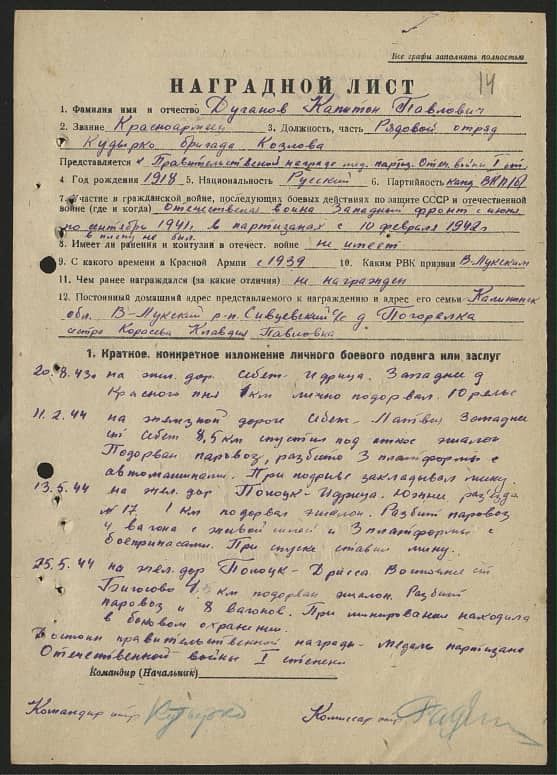 Все графы заполнять полностью
14
НАГРАДНОЙ ЛИСТ
1. Фамилия имя и отчество Дуганов Капитон Павлович
2. Звание Красноармеец 3. Должность, часть Рядовой отряд
Кудырко бригада Козлова
Представляется к Правительственной награде мед. партиз. Отеч. войны I ст.
4. Год рождения 1918 5. Национальность Русский 6. Партийность канд. ВКП(б)
7. Участие в гражданской войне, последующих боевых действиях по защите СССР и отечественной
войне (где и когда) Отечествен война Западный фронт с июня
по сентябрь 1941г. в партизанах с 10 февраля 1942г
в плену не был.
8. Имеет ли ранения и контузии в отечест. войне не имеет
9. С какого времени в Красной Армии с 1939 10. Каким РВК призван В-Лукским
11. Чем ранее награждался (за какие отличия) не награжден
12. Постоянный домашний адрес представляемого к награждению и адрес его семьи Калининск
обл. В-Лукский р-н. Сивуевский с/с д Погорелка
сестра Карасева Клавдия Павловна
1. Краткое, конкретное изложение личного боевого подвига или заслуг
20.8.43г. на жил. дор Себеж-Идрица. Западнее д
Красного пня 1км лично подорвал 10 рельс
11.2.44 на железной дороге Себеж-Латвия Западнее
ст Себеж 8,5 км спустил под откос эшалон
Подорван паровоз, разбито 3 платформы с
автомашинами. При подрыве закладывал мину.
13.5.44 на жел. дор Полоцк-Идрица. Южнее раз'езда
№17. 1 км подорвал эшалон. Разбит паровоз
4 вагона с живой силой и 3 платформы с
боеприпасами. При спуске ставил мину.
25.5.44 на жел. дор Полоцк-Дрисса Восточнее ст
Бигосово км подорван эшалон. Разбит
паровоз и 8 вагонов. При минировании находился
в боковом охранении.
Достоин правительственной награды медаль партизана
Отечественной войны I степени
Командир (Начальник)
Командир отр. Кудырко
Комиссар отр.